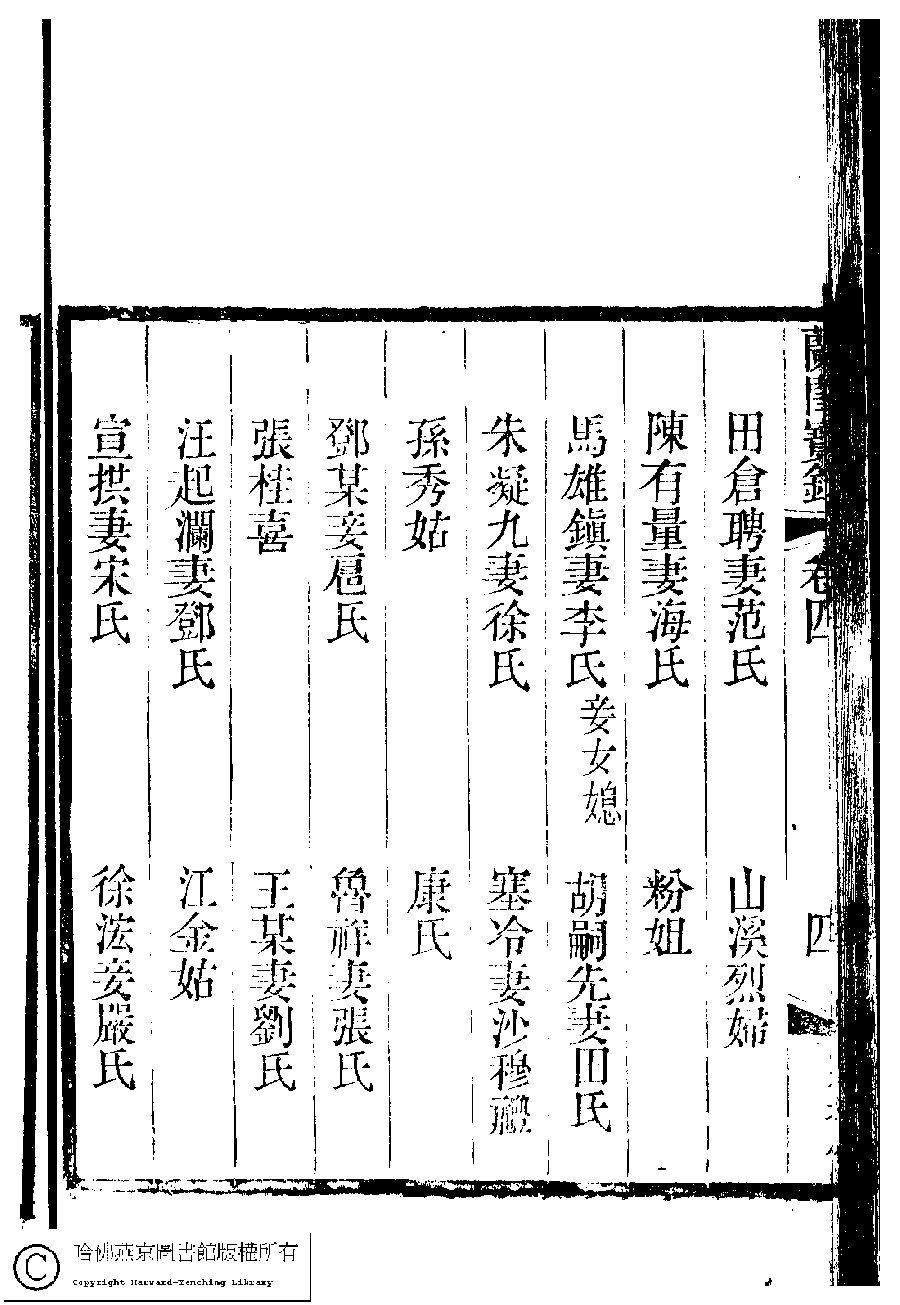 蘭閨寶錄 卷四 四
田倉聘妻范氏 山溪烈婦
陳有量妻海氏 粉姐
馬雄鎮妻李氏妾女媳 胡嗣先妻田氏
朱凝九妻徐氏 塞冷妻沙穆
孫秀姑 康氏
鄧某妾扈氏 魯祥妻張氏
張桂喜 王某妻劉氏
汪起瀾妻鄧氏 江金姑
宣拱妻宋氏 徐浤妾嚴氏
哈佛燕京圖書館版權所有
Copyright Harvard-Yenching Library